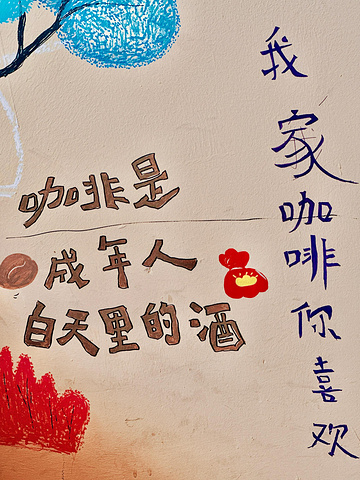 咖啡是
成年人
白天里的酒
我家咖啡你喜欢